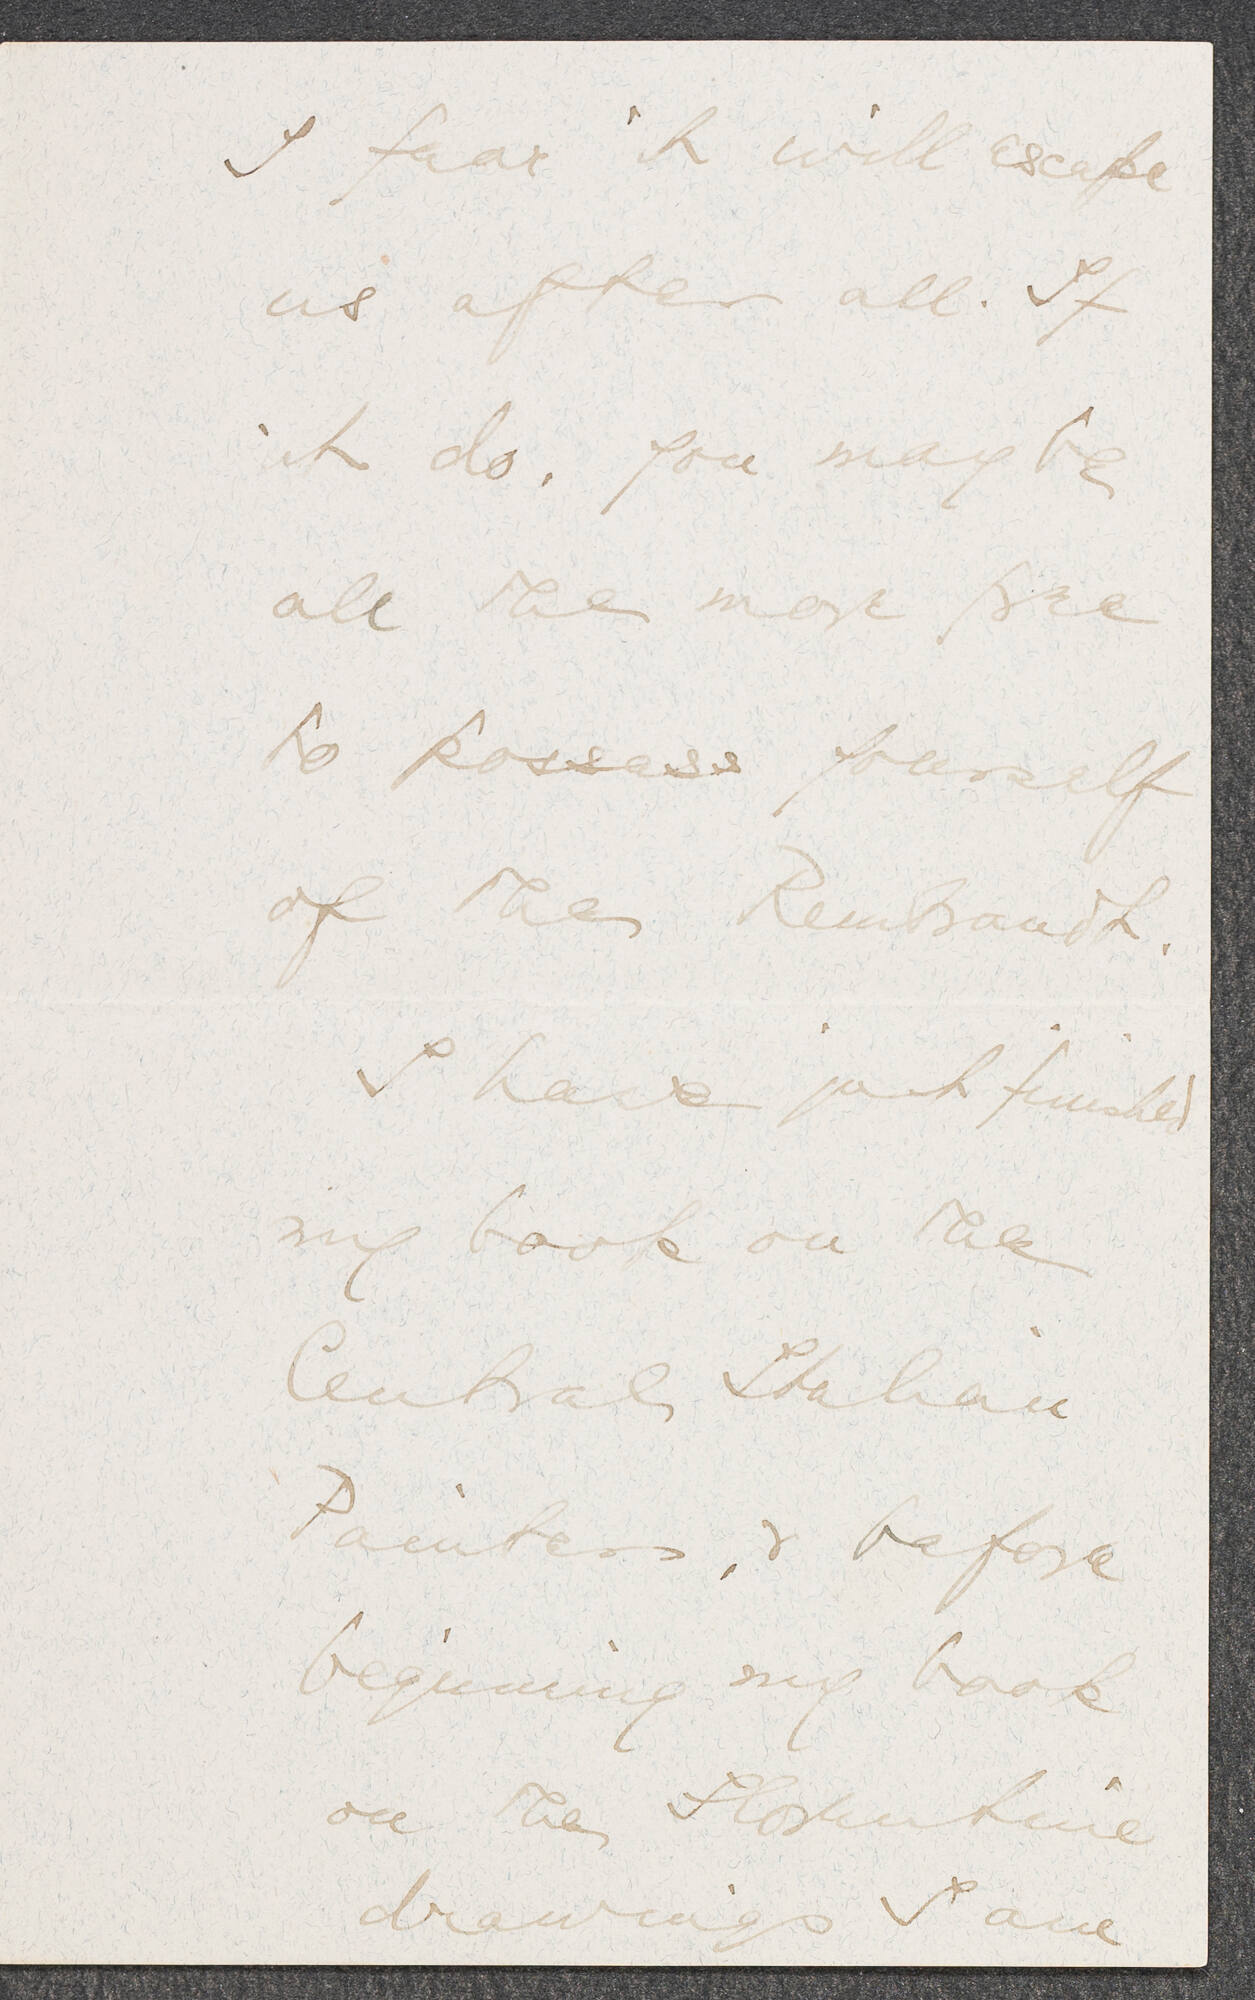 I fear it will escape
us after all. If
it do, you may be
all the more free
to possess yourself
of the Rembrandt.
I have just finished
my book on the
Central Italian
Painters, & before
beginning my book
on the Florentine
drawings I am